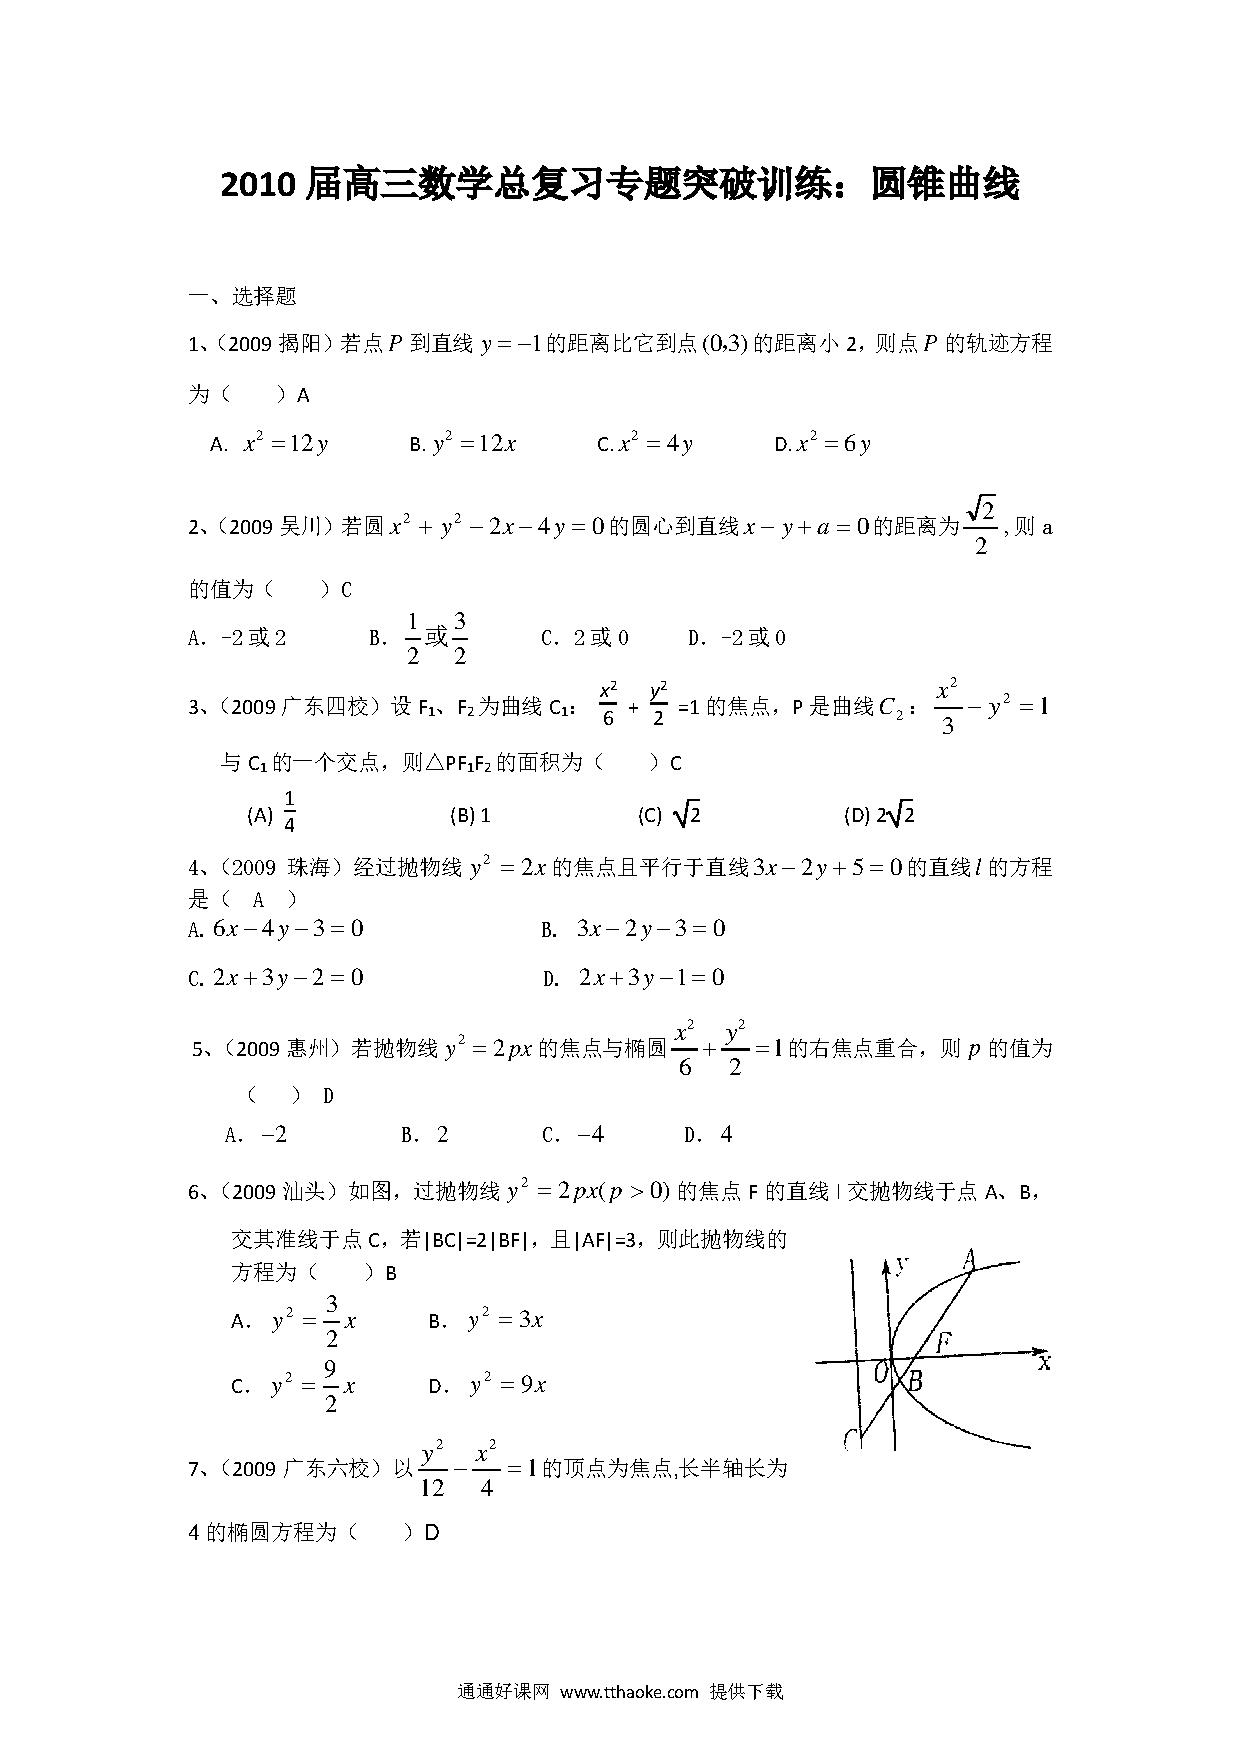 2010届高三数学总复习专题突破训练：圆锥曲线
一、选择题
1、（2009揭阳）若点P到直线y=−1的距离比它到点(0,3)的距离小2，则点P的轨迹方程
为（　　）A
A. x²=12y　B. y²=12x　C. x²=4y　D. x²=6y
2、（2009吴川）若圆x²+y²−2x−4y=0的圆心到直线x−y+a=0的距离为√2/2,则a
的值为（　　）C
A. -2或2　B. 1/2或3/2　C. 2或0　D. -2或0
3、（2009广东四校）设F₁、F₂为曲线C₁：x²/6+y²/2=1的焦点，P是曲线C₂：x²/3−y²=1
与C₁的一个交点，则△PF₁F₂的面积为（　　）C
(A) 1/4　(B) 1　(C) √2　(D) 2√2
4、（2009 珠海）经过抛物线y²=2x的焦点且平行于直线3x−2y+5=0的直线l的方程
是（ A ）
A. 6x−4y−3=0　B. 3x−2y−3=0
C. 2x+3y−2=0　D. 2x+3y−1=0
5、（2009惠州）若抛物线y²=2px的焦点与椭圆x²/6+y²/2=1的右焦点重合，则p的值为
（　　） D
A. −2　B. 2　C. −4　D. 4
6、（2009汕头）如图，过抛物线y²=2px(p>0)的焦点F的直线l交抛物线于点A、B，
交其准线于点C，若|BC|=2|BF|，且|AF|=3，则此抛物线的
方程为（　　）B
A. y²=3/2x　B. y²=3x
C. y²=9/2x　D. y²=9x
y
A
F
x
O
B
C
7、（2009广东六校）以y²/12−x²/4=1的顶点为焦点,长半轴长为
4的椭圆方程为（　　）D
通通好课网 www.tthaoke.com 提供下载